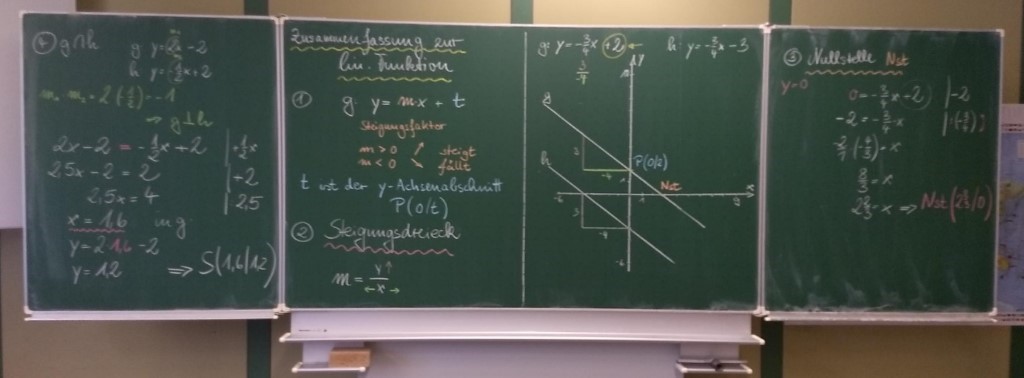 ④ g ∩ h
m₁
g: y = 2x - 2
h: y = -½x + 2
m₁ · m₂ = 2 · (-½) = -1
⇒ g ⊥ h
2x - 2 = -½x + 2 | +½x
2,5x - 2 = 2 | +2
2,5x = 4 | : 2,5
x = 1,6 in g:
y = 2 · 1,6 - 2
y = 1,2 ⇒ S(1,6|1,2)
Zusammenfassung zur
lin. Funktion
① g: y = mx + t
Steigungsfaktor
m > 0 ↗ steigt
m < 0 ↘ fällt
t ist der y-Achsenabschnitt
P(0/t)
② Steigungsdreieck
m = y↑ / ←x→
g: y = -¾x + 2 ← h: y = -¾x - 3
y
g
h
3
-4
P(0/2)
Nst
x
3
-4
-6
③ Nullstelle Nst
y=0
0 = -¾x + 2 | -2
-2 = -¾x
8/3 = x
2⅔ = x ⇒ Nst(2⅔/0)